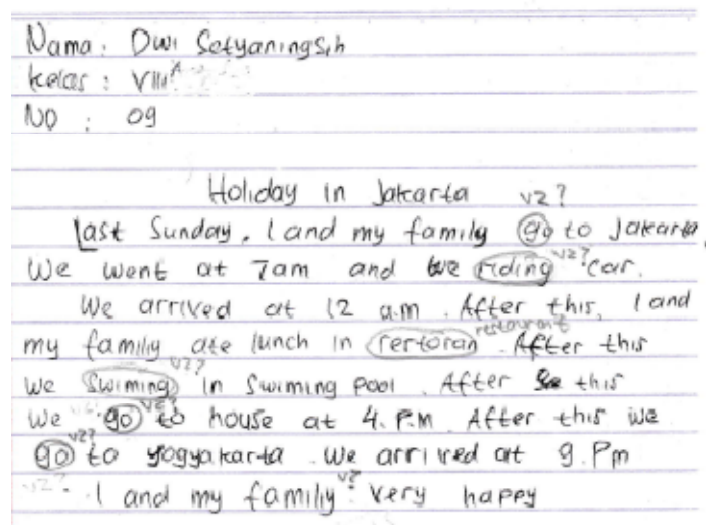 Nama : Dwi Setyaningsih
Kelas : VIII A
NO : 09
Holiday in Jakarta v2?
Last Sunday, I and my family go to Jakarta,
We went at 7am and we riding v2? car.
We arrived at 12 a.m. After this, I and
restaurant
my family ate lunch in rertoran. After this
v2?
We Swiming in Swiming pool. After this
We go v2? to house at 4. P.M After this we
v2?
go to yogyakarta. We arrived at 9. Pm
v2? I and my family v2? very happy